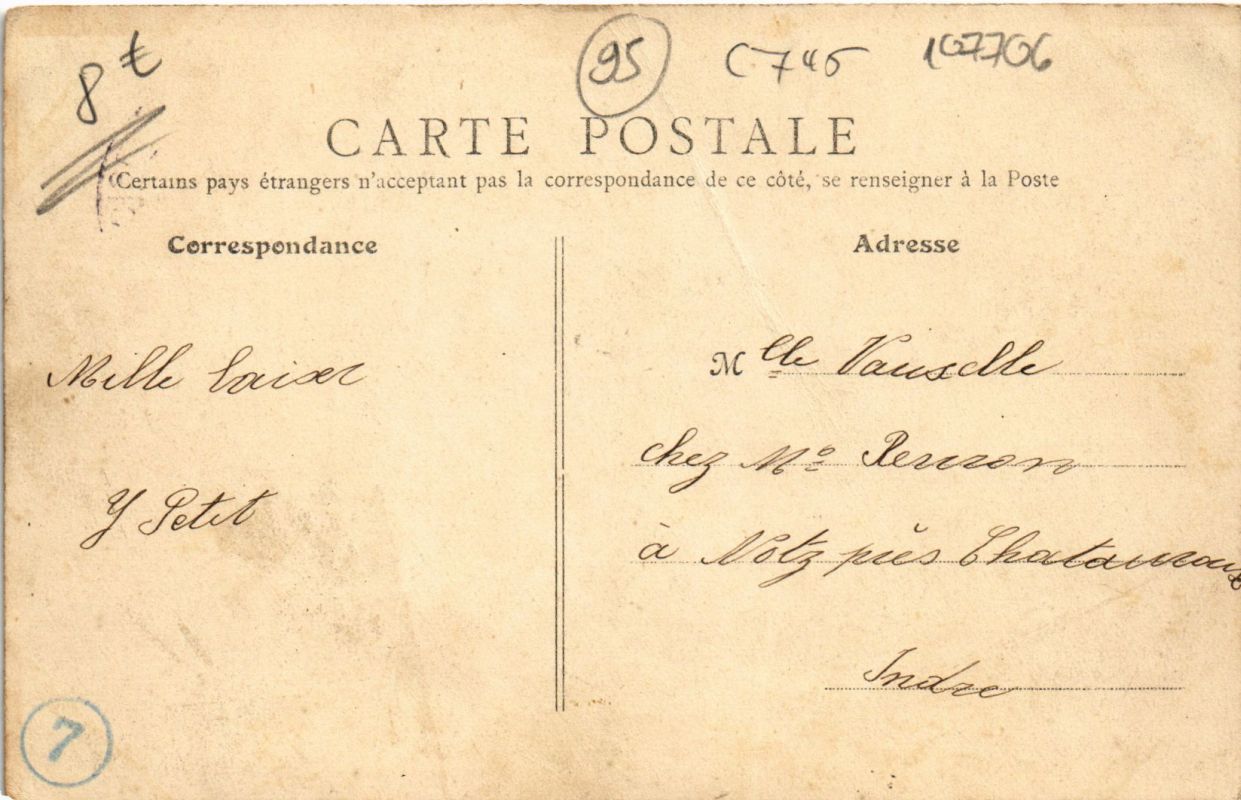 8 €
95
C746
107706
CARTE POSTALE
Certains pays étrangers n'acceptant pas la correspondance de ce côté, se renseigner à la Poste
Correspondance
Adresse
Mille baiser
Y Petit
Mlle Vauxelle
chez Mo Perron
à Notz près Chatauroux
Indre
7